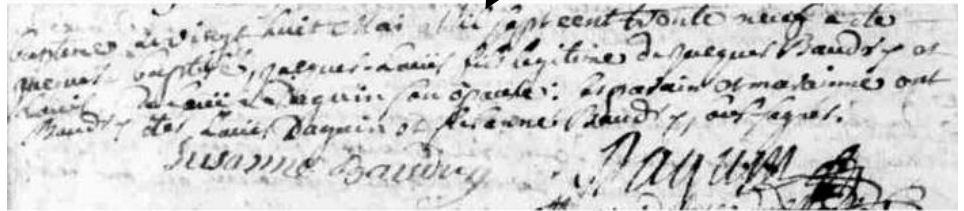 Baptême le vingt huit mai mil sept cent trente neuf a été
baptisé, jacques Louis fils legitime de jacques Baudry et
de Louise Daguin son epouse: le parain et maraine ont
Baudry etes Louis Daguin et susanne Baudry, ont signes.
Susanne Baudry Daguin